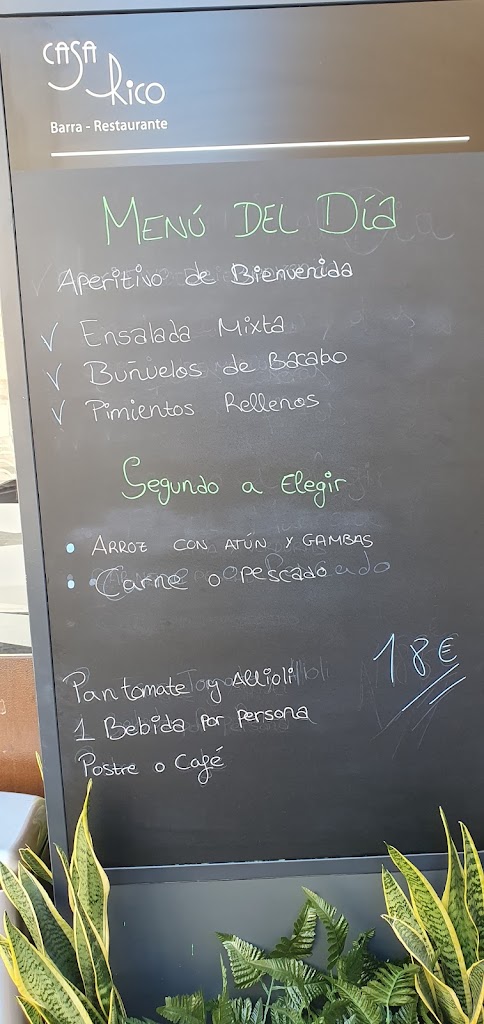 CASA
Rico
Barra - Restaurante
MENÚ DEL Día
Aperitivo de Bienvenida
√ Ensalada Mixta
√ Buñuelos de Bacabo
√ Pimientos Rellenos
Segundo a Elegir
• ARROZ CON ATÚN Y GAMBAS
• Carne o Pescado
18€
Pan tomate y Allioli
1 Bebida por persona
Postre o Café